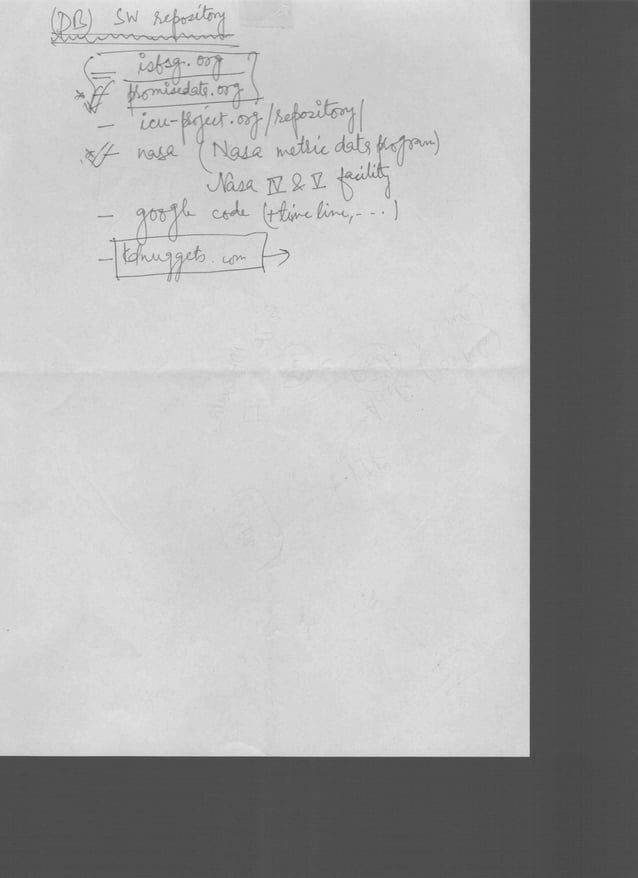 (DB) SW repository
isbsg.org
promisedata.org
- icu-project.org/repository/
- nasa (Nasa metric data program)
Nasa IV & V facility
- google code (+time line, ---)
- kdnuggets.com →